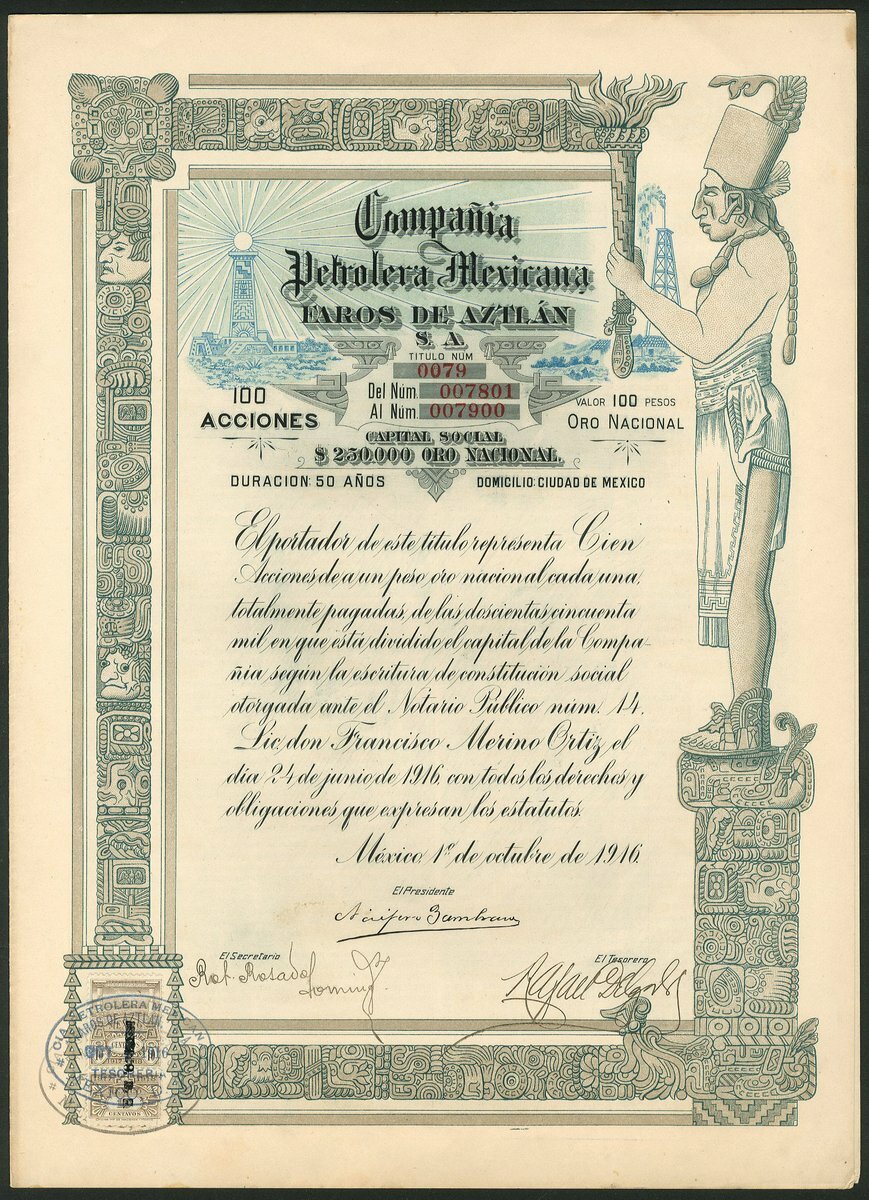 Compañia
Petrolera Mexicana
FAROS DE AZTLÁN
S. A.
TITULO NÚM
0079
100
ACCIONES
Del Núm. 007801
Al Núm. 007900
VALOR 100 PESOS
ORO NACIONAL
CAPITAL SOCIAL
$ 250.000 ORO NACIONAL.
DURACION: 50 AÑOS
DOMICILIO: CIUDAD DE MEXICO
El portador de este título representa Cien
Acciones de a un peso oro nacional cada una,
totalmente pagadas, de las doscientas cincuenta
mil en que está dividido el capital de la Compa-
ñia según la escritura de constitución social
otorgada ante el Notario Público núm. 14.
Lic. don Francisco Merino Ortiz el
día 24 de junio de 1916, con todos los derechos y
obligaciones que expresan los estatutos.
México 1º de octubre de 1916.
El Presidente
Zambrano
El Secretario
Rof. Rosado
Doming.
El Tesorero
Rafael Delgado
CIA PETROLERA MEXICANA
FAROS DE AZTLAN
1916
TESORERIA
MEXICO
CENTAVOS